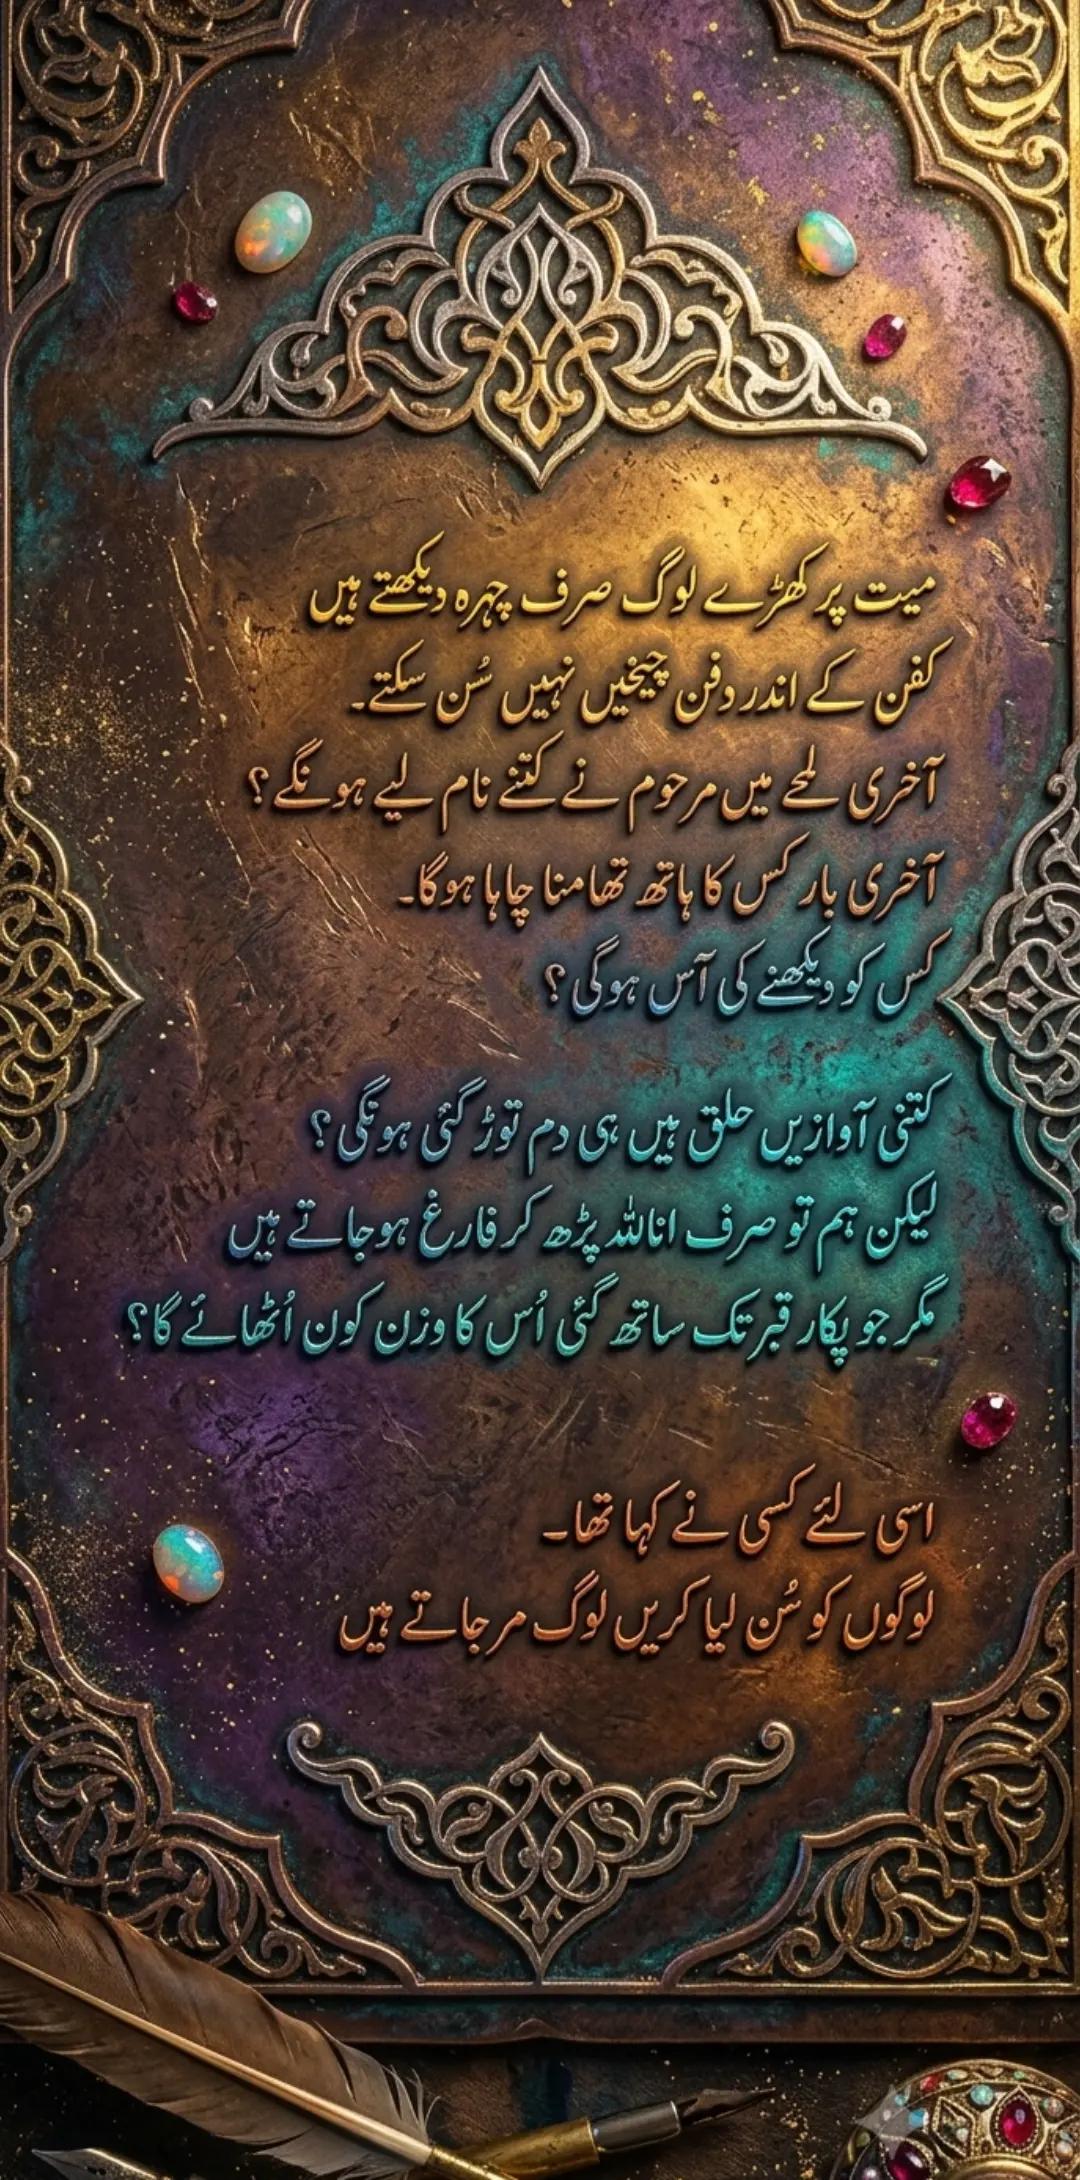 میت پر کھڑے لوگ صرف چہرہ دیکھتے ہیں
کفن کے اندر دفن چیخیں نہیں سُن سکتے۔
آخری لمحے میں مرحوم نے کتنے نام لیے ہونگے؟
آخری بار کس کا ہاتھ تھامنا چاہا ہوگا۔
کس کو دیکھنے کی آس ہوگی؟
کتنی آوازیں حلق ہیں ہی دم توڑ گئی ہونگی؟
لیکن ہم تو صرف اناللہ پڑھ کر فارغ ہوجاتے ہیں
مگر جو پکار قبر تک ساتھ گئی اُس کا وزن کون اُٹھائے گا؟
اسی لئے کسی نے کہا تھا۔
لوگوں کو سُن لیا کریں لوگ مرجاتے ہیں